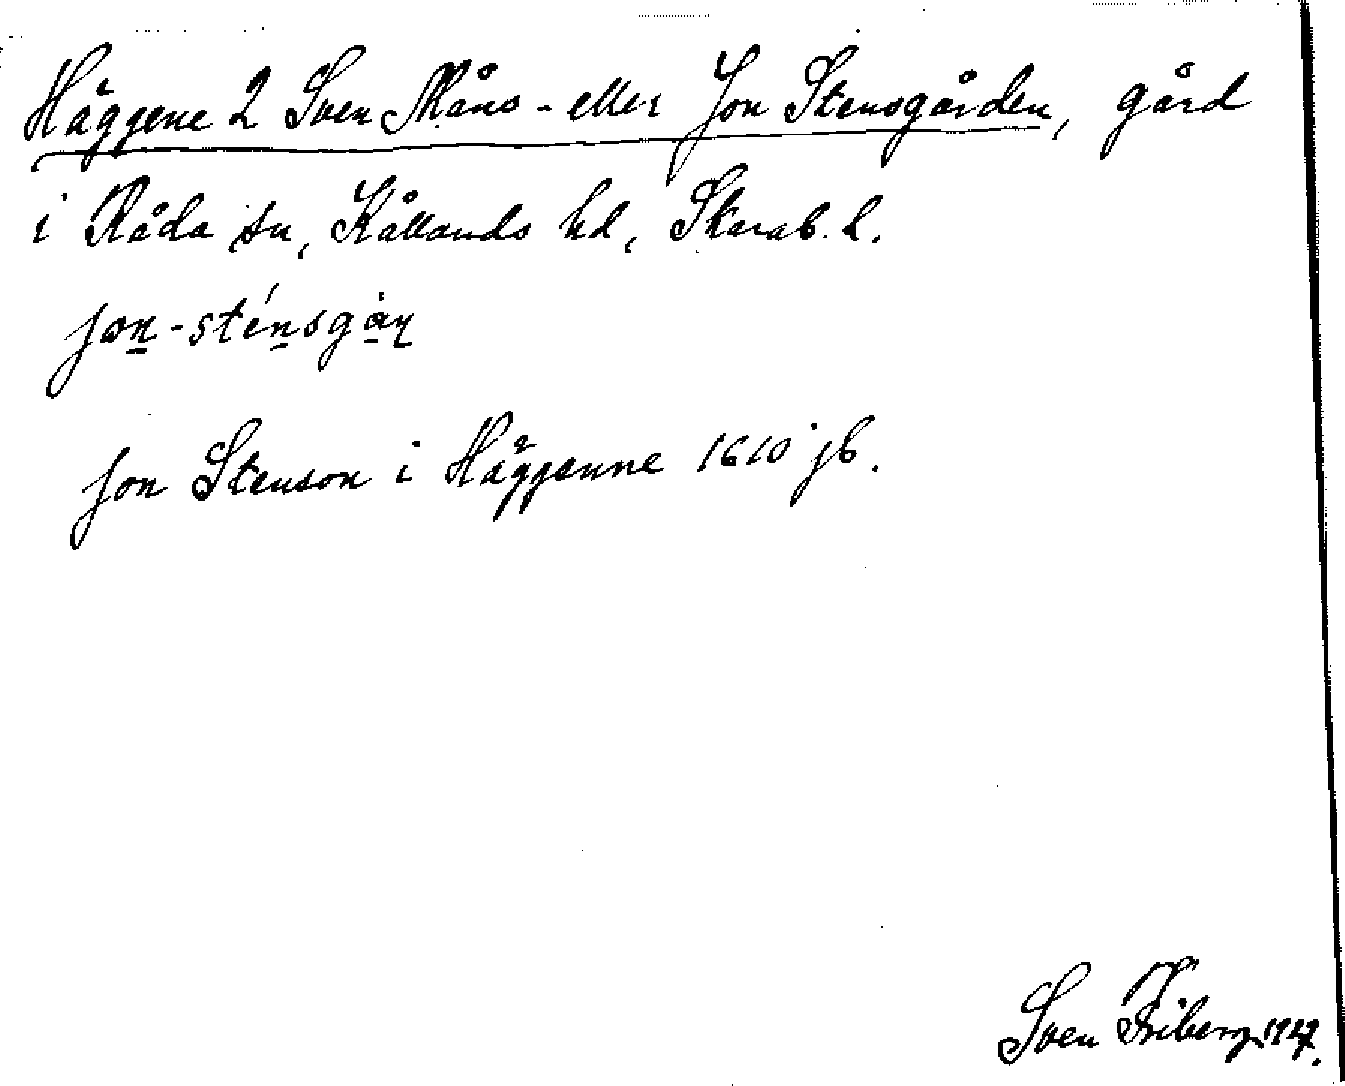 Häggene 2 Sven Måns- eller Jon Stensgården, gård
i Råda sn, Kållands hd, Skarab. l.
jon-sténsgån
Jon Stenson i Häggenne 1610 jb.
Sven Friberg 1927.